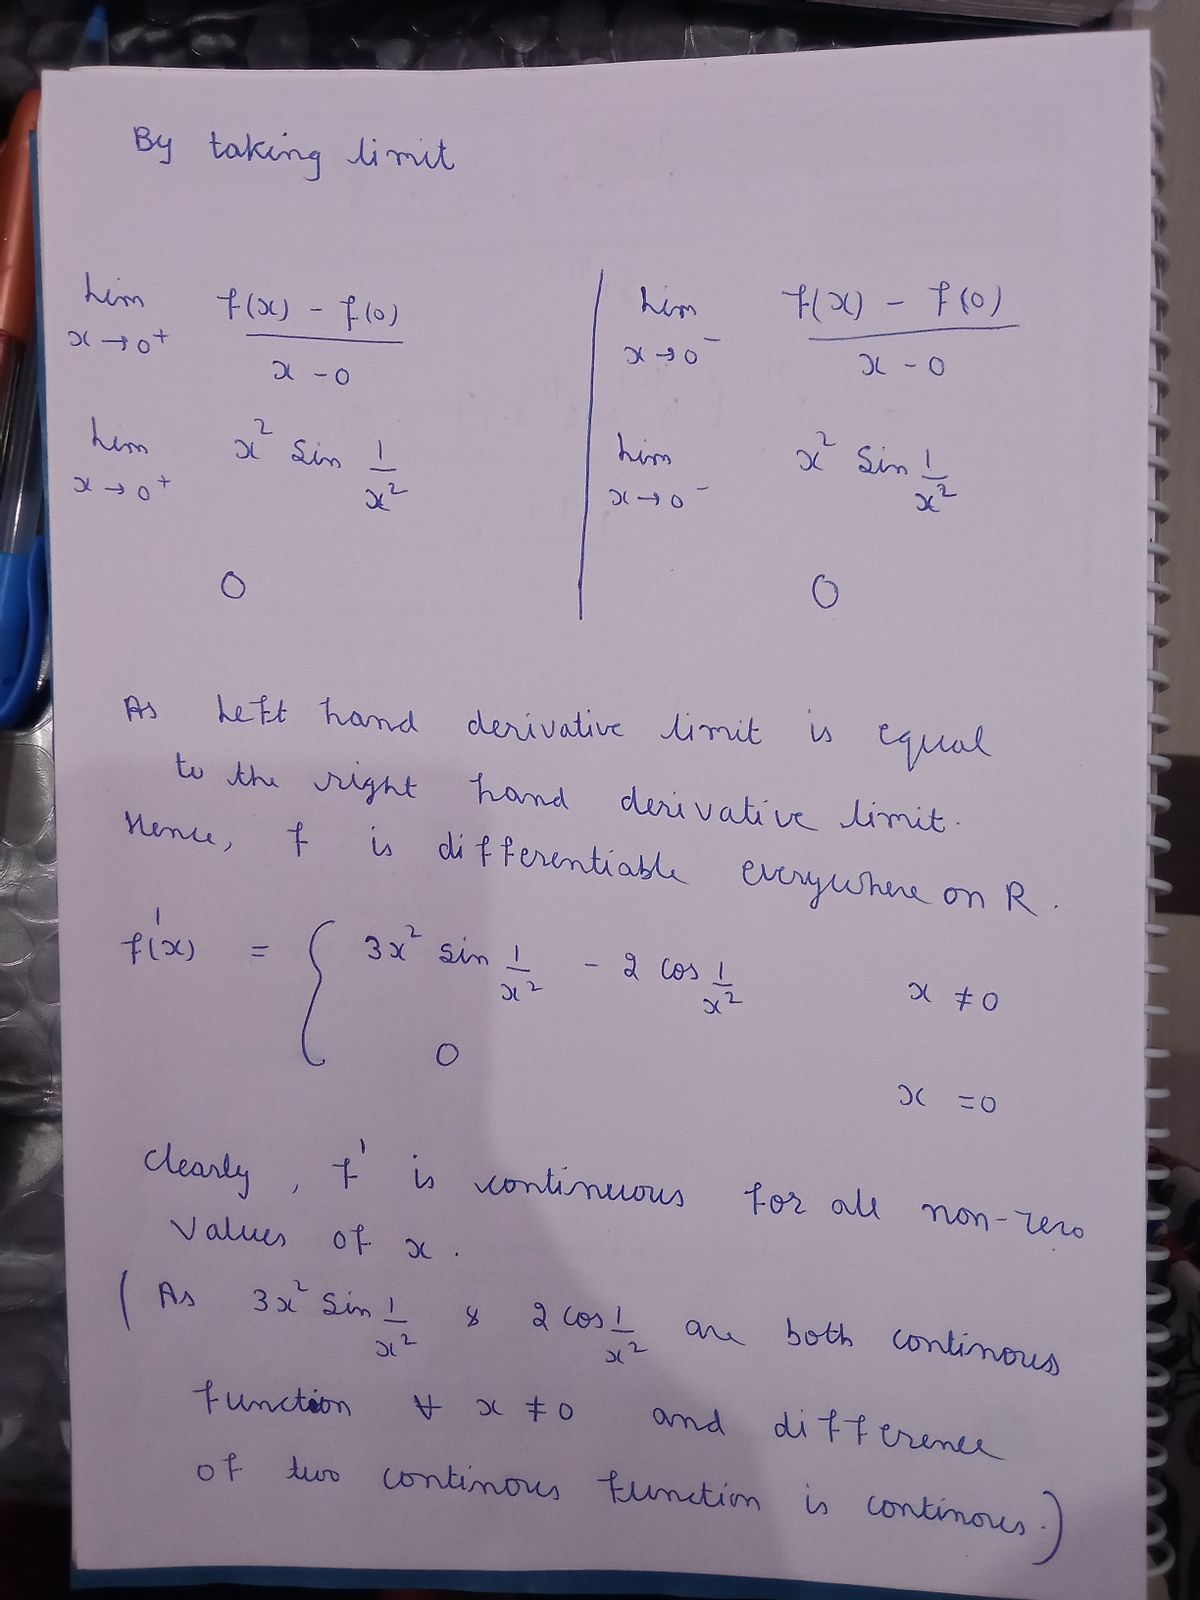 By taking limit
Lim x→0⁺ f(x) - f(0) / x - 0
Lim x→0⁺ x² Sin 1/x²
0
Lim x→0⁻ f(x) - f(0) / x - 0
Lim x→0⁻ x² Sin 1/x²
0
As Left hand derivative limit is equal
to the right hand derivative limit.
Hence, f is differentiable everywhere on R.
f'(x) = { 3x² sin 1/x² - 2 cos 1/x² x ≠ 0
0 x = 0
clearly, f' is continuous for all non-zero
values of x.
( As 3x² Sin 1/x² & 2 cos 1/x² are both continous
function ∀ x ≠ 0 and difference
of two continous function is continous.)